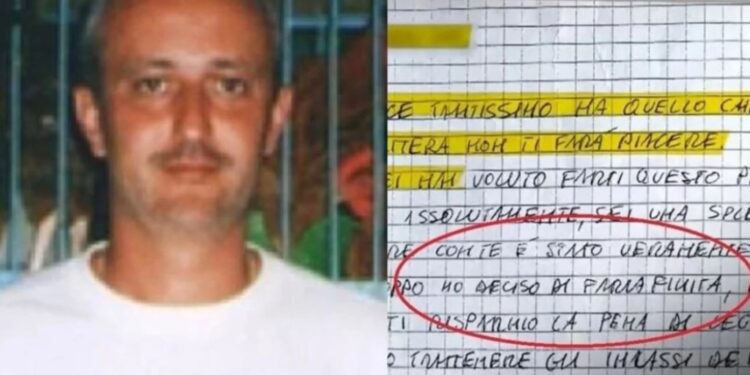 CE TANTISSIMO HA QUELLO CA
TTERA NON TI FARÀ PIACERE.
EI HAI VOLUTO FARMI QUESTO P
ASSOLUTAMENTE, SEI UNA SPLE
RE CON TE E SIMO VERAMENTE
ORPO HO DECISO DI FARLA FINITA,
TI RISPARMIO LA PENA DI LEG
O TRATTENERE GLI INCASSI DE